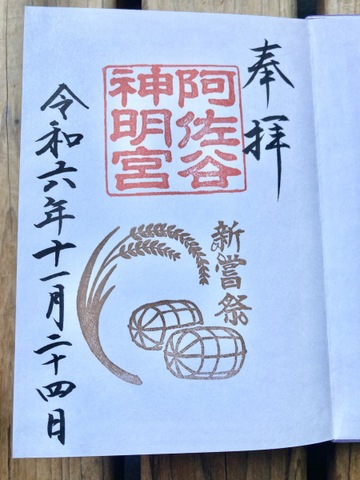 奉拝
阿佐谷
神明宮
新嘗祭
令和六年十一月二十四日